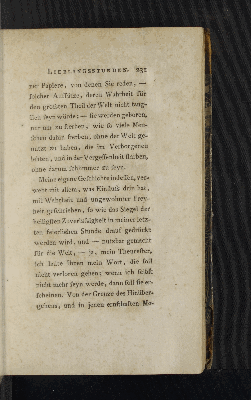 LIEBLINGSSTUNDEN. 231
ner Papiere, von denen Sie reden, —
solcher Aufsätze, deren Wahrheit für
den grössten Theil der Welt nicht taug-
lich seyn würde; — sie werden geboren,
nur um zu sterben, wie so viele Men-
schen dahin sterben, ohne der Welt ge-
nutzt zu haben, die im Verborgenen
lebten, und in der Vergessenheit starben,
ohne darum schlimmer zu seyn.
Meine eigene Geschichte indessen, ver-
webt mit allem, was Einfluss drin hat,
mit Wahrheit und ungewohnter Frey-
heit geschrieben, so wie das Siegel der
heiligsten Zuverlässigkeit in meiner letz-
ten feierlichen Stunde drauf gedrückt
werden wird, und — nutzbar gemacht
für die Welt, — ja, mein Theurester,
ich lasse Ihnen mein Wort, die soll
nicht verloren gehen; wenn ich selbst
nicht mehr seyn werde, dann soll sie er-
scheinen. Von der Grenze des Hinüber-
gehens, und in jenen ernsthaften Mo-